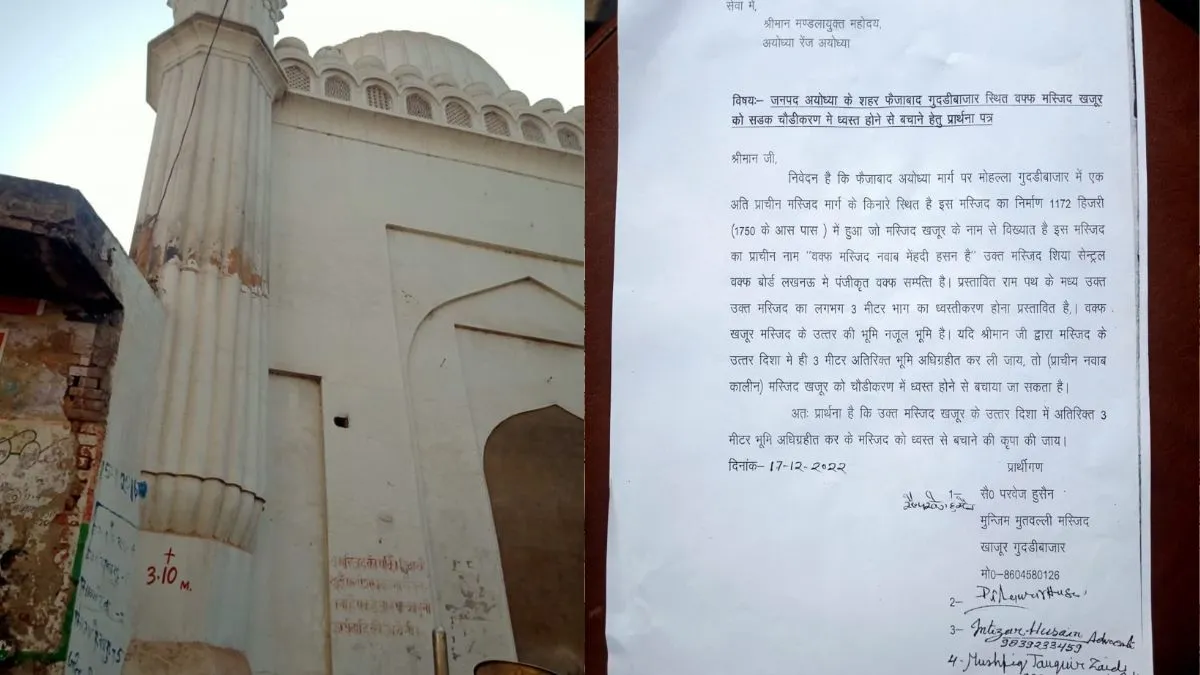 3.10 M.
सेवा में,
श्रीमान मण्डलायुक्त महोदय,
अयोध्या रेंज अयोध्या
विषयः– जनपद अयोध्या के शहर फैजाबाद गुदडीबाजार स्थित वफ्फ मस्जिद खजूर
को सडक चौडीकरण मे ध्वस्त होने से बचाने हेतु प्रार्थना पत्र
श्रीमान जी,
निवेदन है कि फैजाबाद अयोध्या मार्ग पर मोहल्ला गुदडीबाजार में एक
अति प्राचीन मस्जिद मार्ग के किनारे स्थित है इस मस्जिद का निर्माण 1172 हिजरी
(1750 के आस पास ) में हुआ जो मस्जिद खजूर के नाम से विख्यात है इस मस्जिद
का प्राचीन नाम "वक्फ मस्जिद नवाब मेंहदी हसन है" उक्त मस्जिद शिया सेन्ट्रल
वक्फ बोर्ड लखनऊ मे पंजीकृत वक्फ सम्पत्ति है। प्रस्तावित राम पथ के मध्य उक्त
उक्त मस्जिद का लगभग 3 मीटर भाग का ध्वस्तीकरण होना प्रस्तावित है,। वक्फ
खजूर मस्जिद के उत्तर की भूमि नजूल भूमि है। यदि श्रीमान जी द्वारा मस्जिद के
उत्तर दिशा मे ही 3 मीटर अतिरिक्त भूमि अधिग्रहीत कर ली जाय, तो (प्राचीन नवाब
कालीन) मस्जिद खजूर को चौडीकरण में ध्वस्त होने से बचाया जा सकता है।
अतः प्रार्थना है कि उक्त मस्जिद खजूर के उत्तर दिशा में अतिरिक्त 3
मीटर भूमि अधिग्रहीत कर के मस्जिद को ध्वस्त से बचाने की कृपा की जाय।
दिनांक– 17-12-2022
प्रार्थीगण
1- सै0 परवेज हुसैन
मुन्जिम मुतवल्ली मस्जिद
खाजूर गुदडीबाजार
मो0–8604580126
2-
3- Intizar Husain Advocate
9839233459
4- Mushfiq Tauquir Zaidi